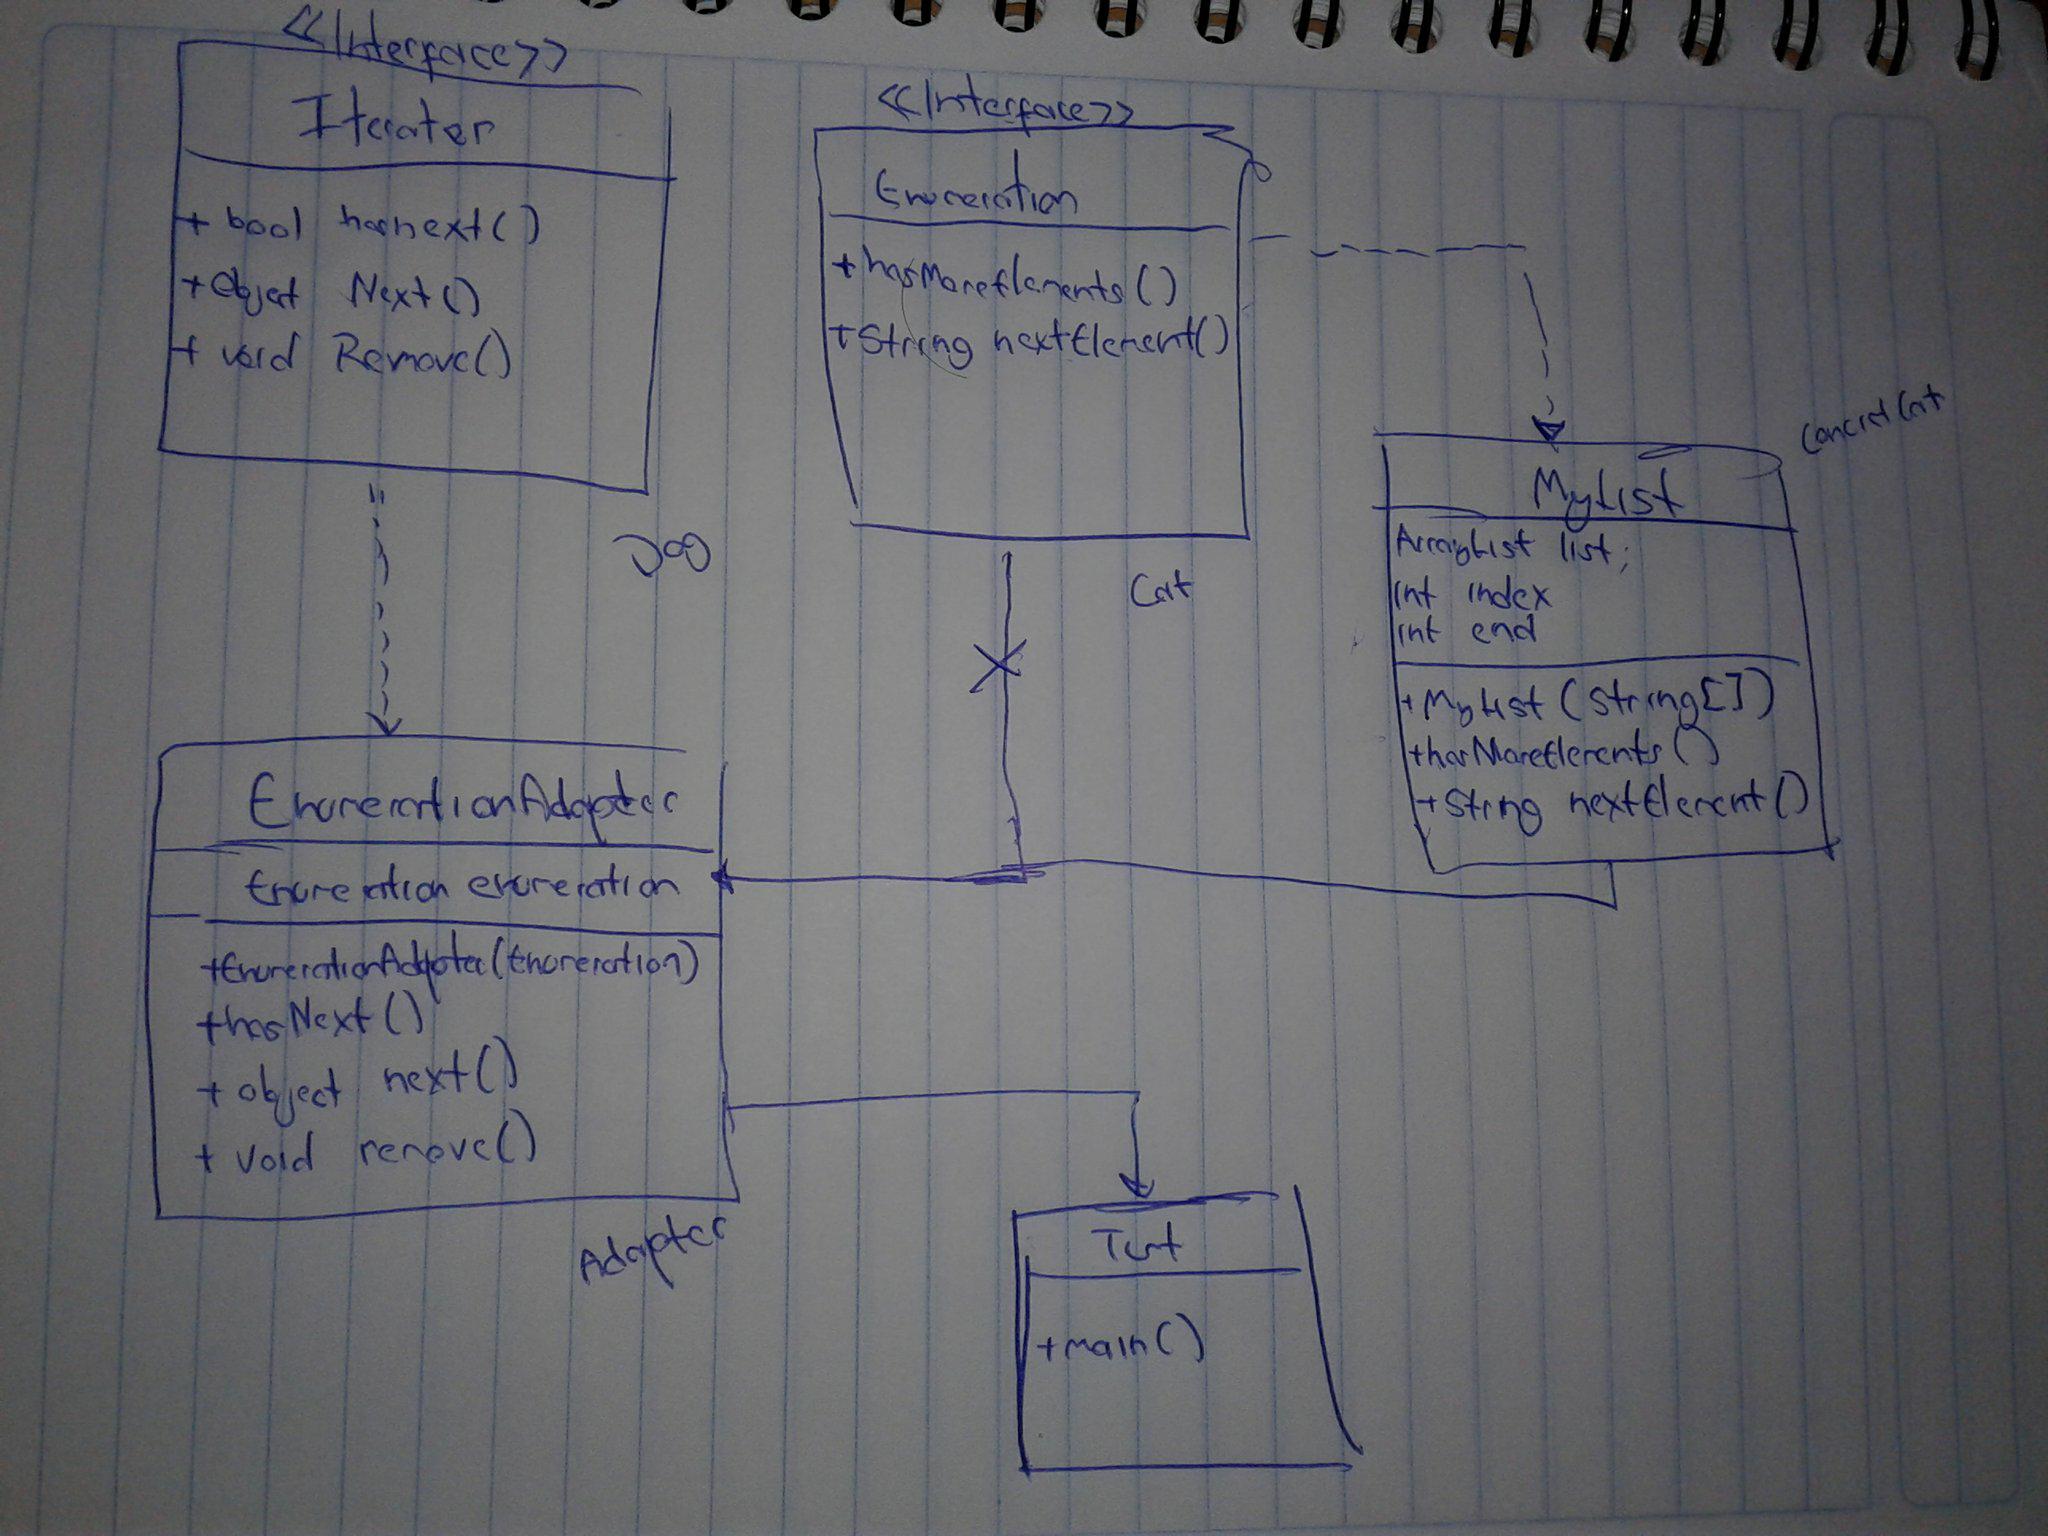 <<Interface>>
Iterator
+ bool hasnext()
+ Object Next()
+ void Remove()
Dog
<<Interface>>
Enumeration
+hasMoreElements()
+String nextElement()
Cat
ConcretCat
MyList
ArrayList list;
int index
int end
+MyList(String[])
+hasMoreElements()
+String nextElement()
EnumerationAdapter
Enumeration enumeration
+EnumerationAdapter(Enumeration)
+hasNext()
+ object next()
+ void remove()
Adapter
Test
+main()